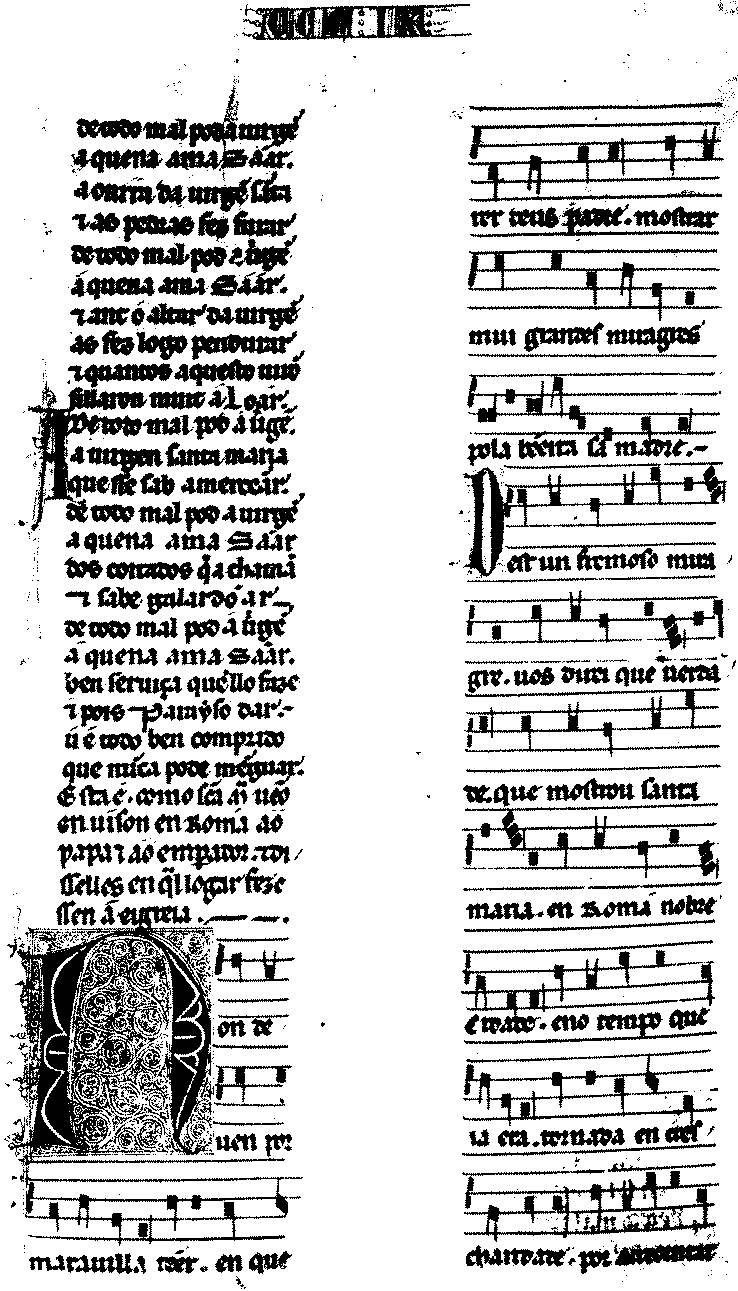 de todo mal pod a uirgẽ
a quen a ama Sãar.
a onrra da uirgẽ sãta
⁊ as pedras fez fiar
de todo mal pod a uirgẽ
a quen a ama Sãar.
o altar da uirgẽ
as fez logo pendurar
⁊ quantos aquesto
fillaron muit a Loar.
De todo mal pod a uirgẽ.
a uirgen santa maria
que sab a merecer.
de todo mal pod a uirgẽ
a quen a ama Sãar
dos coitados q̃ a chamã
⁊ sabe galardõ dar
de todo mal pod a uirgẽ
a quen a ama Sãar.
ben seruiça quello faze
⁊ pois Parayso dar.
u é todo ben comprido
que nũca pode mẽguar.
Esta é. como sc̃a Mª uẽo
en uison en Roma ao
papa ⁊ ao emperador.
en ql logar feze
ssen a eigreia.
Non de
uen por
marauilla tẽer. en que
rer deus padre. mostrar
mui grandes miragres
pola bẽeita sa madre.
Dest un fremoso mira
gre. uos direi que uerda
de. que mostrou santa
maria. en Roma nobre
çidade. eno tempo que
ia era. tornada en cris
chandade. por acrecentar